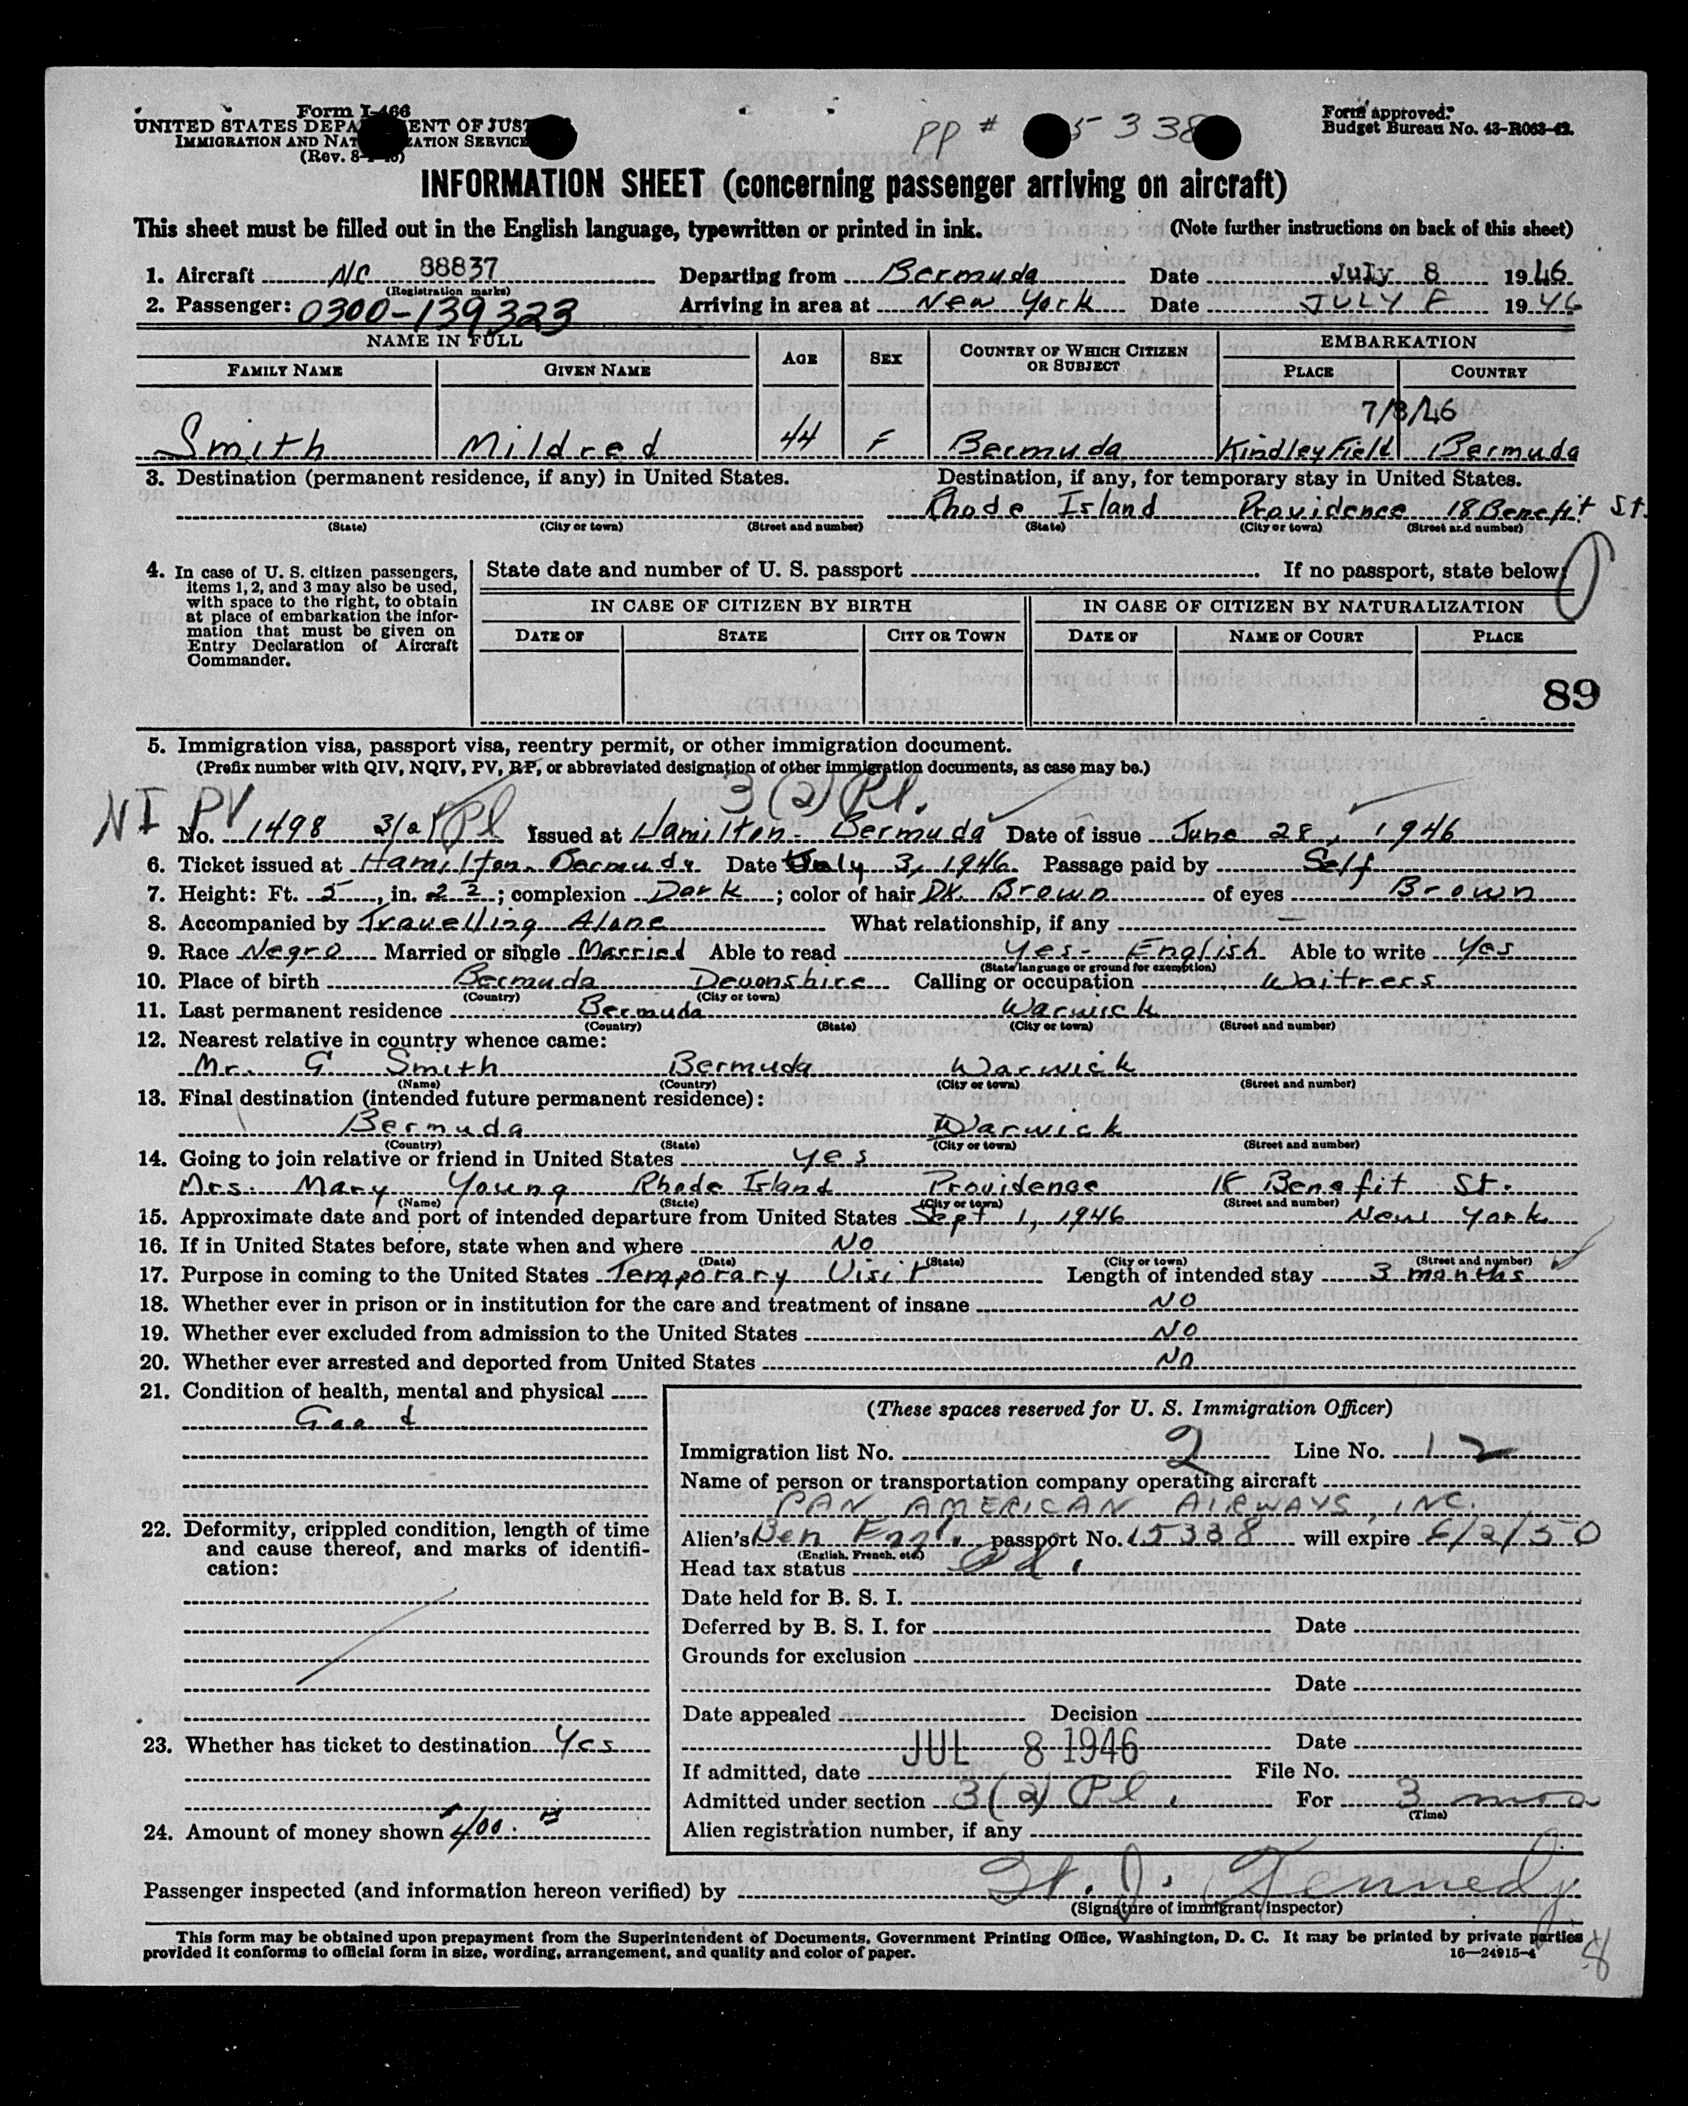 Form I-466
UNITED STATES DEPA ENT OF JUS
IMMIGRATION AND NAT ZATION SERVICE
(Rev. 8-
PP # 5338
Form approved.
Budget Bureau No. 43-R063-42.
INFORMATION SHEET (concerning passenger arriving on aircraft)
This sheet must be filled out in the English language, typewritten or printed in ink. (Note further instructions on back of this sheet)
1. Aircraft NC 88837 Departing from Bermuda Date July 8 1946
(Registration marks)
2. Passenger: 0300-139323 Arriving in area at New York Date JULY 8 1946
NAME IN FULL AGE SEX COUNTRY OF WHICH CITIZEN OR SUBJECT EMBARKATION
FAMILY NAME GIVEN NAME PLACE COUNTRY
7/8/46
Smith Mildred 44 F Bermuda Kindley Field Bermuda
3. Destination (permanent residence, if any) in United States. Destination, if any, for temporary stay in United States.
Rhode Island Providence 18 Benefit St.
(State) (City or town) (Street and number) (State) (City or town) (Street and number)
4. In case of U. S. citizen passengers, items 1, 2, and 3 may also be used, with space to the right, to obtain at place of embarkation the information that must be given on Entry Declaration of Aircraft Commander.
State date and number of U. S. passport If no passport, state below:
IN CASE OF CITIZEN BY BIRTH IN CASE OF CITIZEN BY NATURALIZATION
DATE OF STATE CITY OR TOWN DATE OF NAME OF COURT PLACE
89
5. Immigration visa, passport visa, reentry permit, or other immigration document.
(Prefix number with QIV, NQIV, PV, RP, or abbreviated designation of other immigration documents, as case may be.)
3(2) Pl.
NI PV
No. 1498 3(2) Pl Issued at Hamilton - Bermuda Date of issue June 28, 1946
6. Ticket issued at Hamilton Bermuda Date July 3, 1946 Passage paid by Self
7. Height: Ft. 5, in. 2 2; complexion Dark; color of hair DK. Brown of eyes Brown
8. Accompanied by Travelling Alone What relationship, if any —
9. Race Negro Married or single Married Able to read Yes - English Able to write Yes
(State language or ground for exemption)
10. Place of birth Bermuda Devonshire Calling or occupation Waitress
(Country) (City or town)
11. Last permanent residence Bermuda Warwick
(Country) (State) (City or town) (Street and number)
12. Nearest relative in country whence came:
Mr. G Smith Bermuda Warwick
(Name) (Country) (City or town) (Street and number)
13. Final destination (intended future permanent residence):
Bermuda Warwick
(Country) (State) (City or town) (Street and number)
14. Going to join relative or friend in United States Yes
Mrs. Mary Young Rhode Island Providence 18 Benefit St.
(Name) (State) (City or town) (Street and number)
15. Approximate date and port of intended departure from United States Sept 1, 1946 New York
16. If in United States before, state when and where No
(Date) (State) (City or town) (Street and number)
17. Purpose in coming to the United States Temporary Visit Length of intended stay 3 months
18. Whether ever in prison or in institution for the care and treatment of insane NO
19. Whether ever excluded from admission to the United States NO
20. Whether ever arrested and deported from United States NO
21. Condition of health, mental and physical
Good
22. Deformity, crippled condition, length of time and cause thereof, and marks of identification:
23. Whether has ticket to destination Yes
24. Amount of money shown 400.=
(These spaces reserved for U. S. Immigration Officer)
Immigration list No. 2 Line No. 12
Name of person or transportation company operating aircraft
PAN AMERICAN AIRWAYS, INC.
Alien's Ber Engl. passport No. 15338 will expire 6/2/50
(English, French, etc.)
Head tax status
Date held for B. S. I.
Deferred by B. S. I. for Date
Grounds for exclusion
Date
Date appealed Decision
Date
If admitted, date JUL 8 1946 File No.
Admitted under section 3(2) Pl. For 3 mos
(Time)
Alien registration number, if any
Passenger inspected (and information hereon verified) by J. Kennedy
(Signature of immigrant inspector)
This form may be obtained upon prepayment from the Superintendent of Documents, Government Printing Office, Washington, D. C. It may be printed by private parties
provided it conforms to official form in size, wording, arrangement, and quality and color of paper. 16—24915-4
8